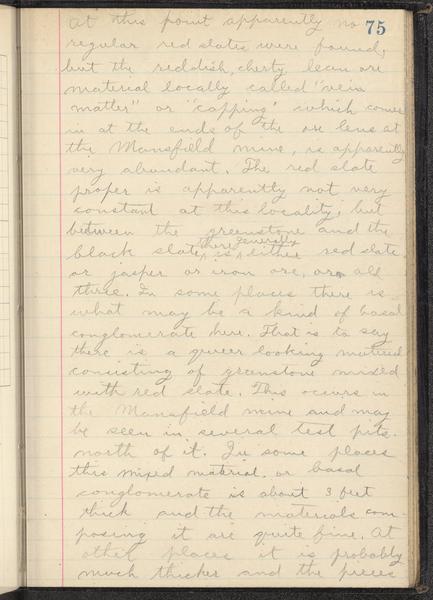 At this point apparently no 75
regular red slates were found,
but the reddish, cherty lean ore
material locally called "vein
matter" or "capping" which comes
in at the ends of the ore lens at
the Mansfield mine, is apparently
very abundant. The red slate
proper is apparently not very
constant at this locality, but
between the greenstone and the
black slate there is generally either red slate
or jasper or iron ore, or all
three. In some places there is
what may be a kind of basal
conglomerate here. That is to say
there is a queer looking material
consisting of greenstone mixed
with red slate. This occurs in
the Mansfield mine and may
be seen in several test pits
north of it. In some places
this mixed material or basal
conglomerate is about 3 feet
thick and the materials com-
posing it are quite fine. At
other places it is probably
much thicker and the pieces